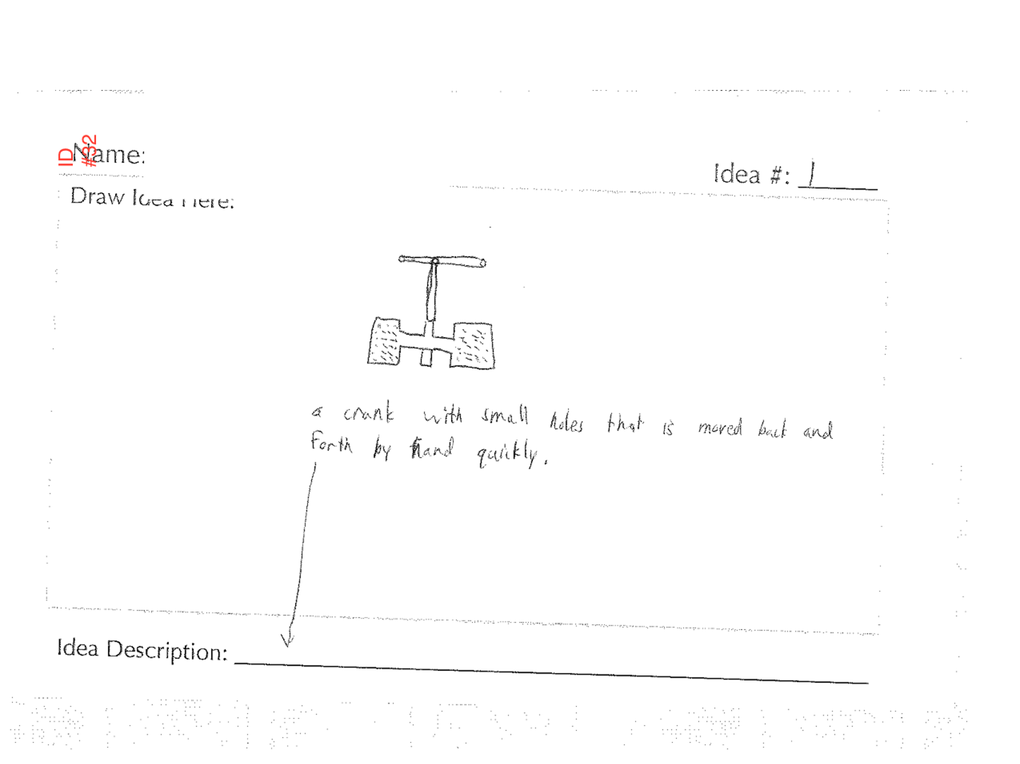 ID
#32
Name:
Idea #: 1
Draw Idea Here:
a crank with small holes that is moved back and
forth by hand quickly.
Idea Description: